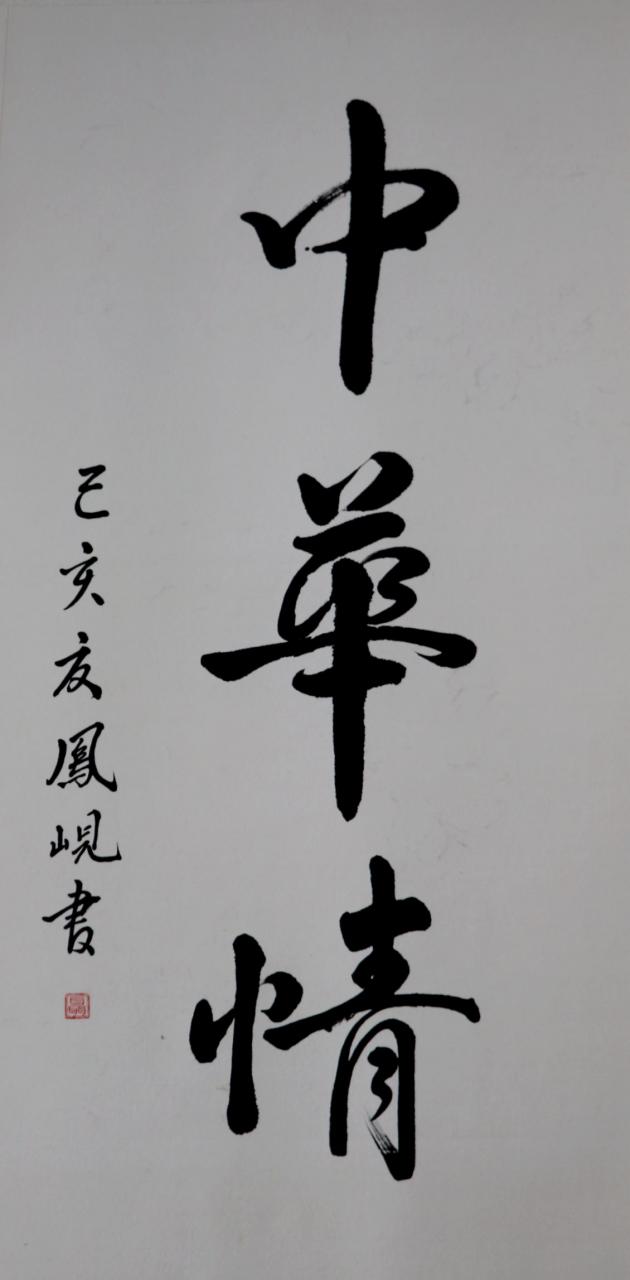 中華情
己亥夏鳳峴書